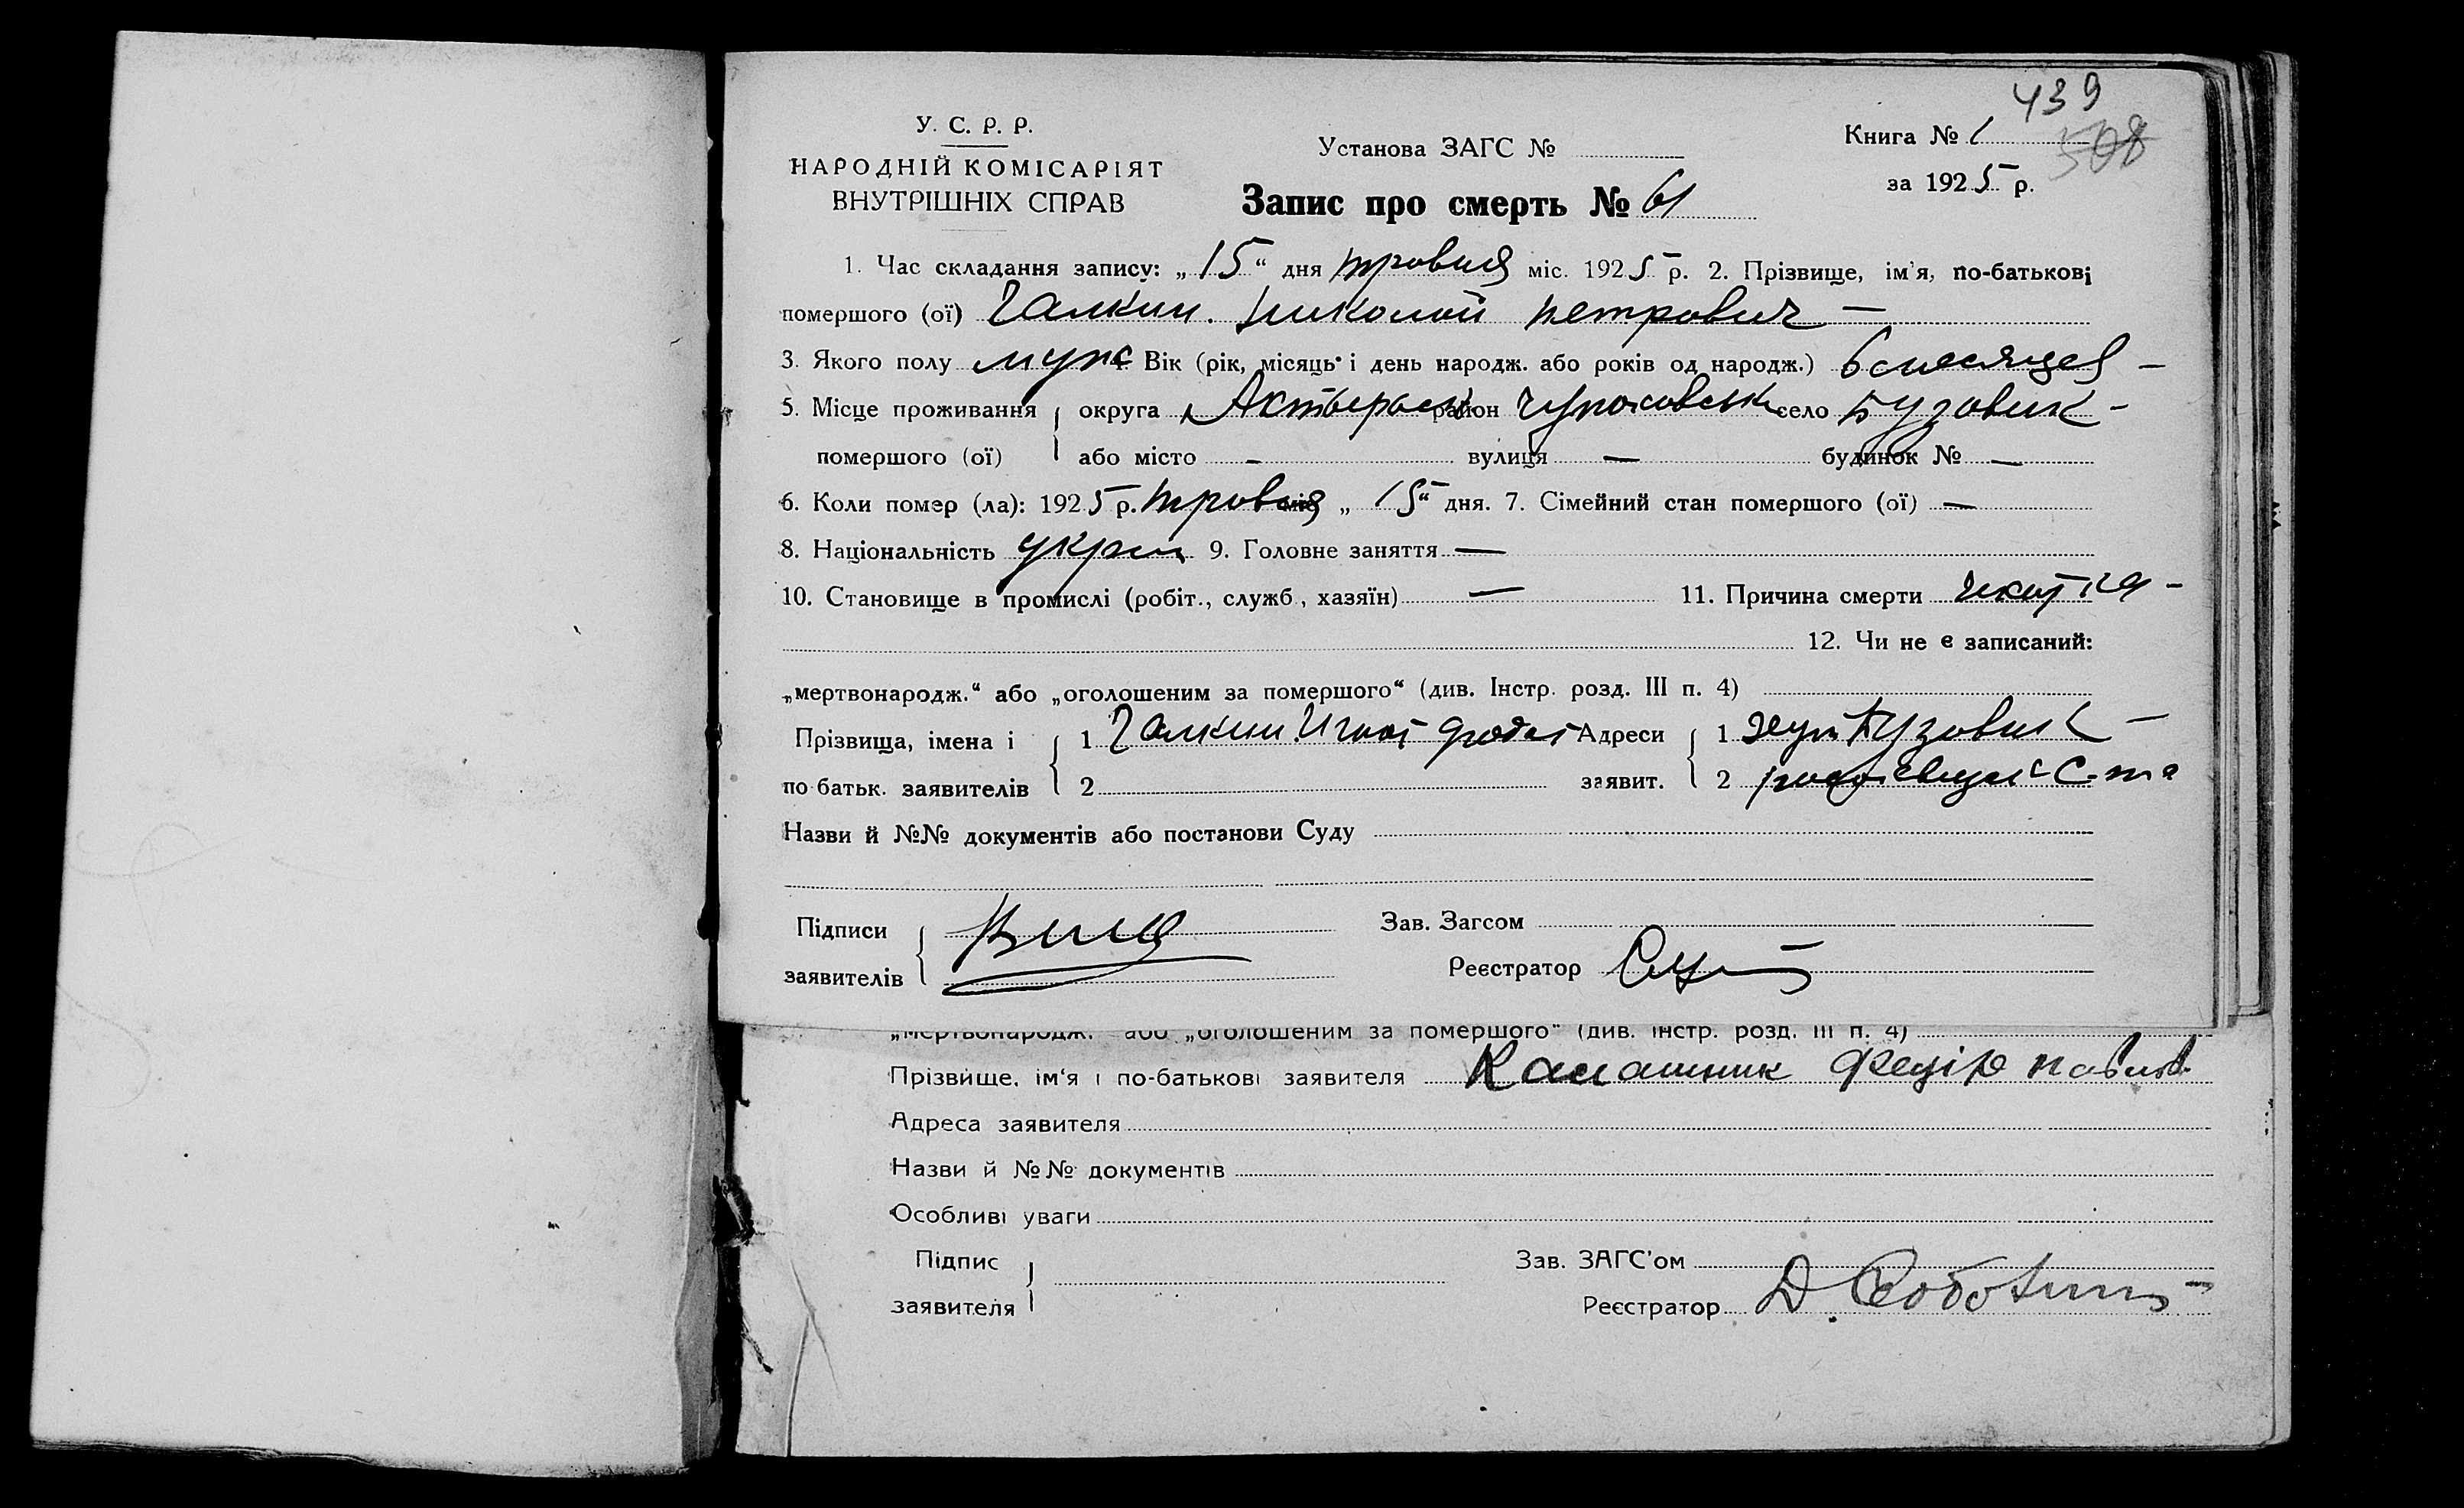 439
У. С. Р. Р.
НАРОДНІЙ КОМІСАРІЯТ
ВНУТРІШНІХ СПРАВ
Установа ЗАГС №
Книга № 1
508
за 1925 р.
Запис про смерть № 61
1. Час складання запису: „15“ дня травня міс. 1925 р. 2. Прізвище, ім'я, по-батькові
помершого (ої) Галкин. Николай Петрович —
3. Якого полу муж 4. Вік (рік, місяць і день народж. або років од народж.) 6 месяцев —
5. Місце проживання округа район село Бузовик —
помершого (ої) або місто — вулиця — будинок № —
6. Коли помер (ла): 1925 р. травня міс „15“ дня. 7. Сімейний стан помершого (ої) —
8. Національність 9. Головне заняття —
10. Становище в промислі (робіт., служб., хазяїн) — 11. Причина смерти
12. Чи не є записаний:
„мертвонародж.“ або „оголошеним за помершого“ (див. Інстр. розд. III п. 4)
Прізвища, імена і 1 Галкин Адреси 1 Бузовик —
по батьк. заявителів 2 заявит. 2
Назви й №№ документів або постанови Суду
Підписи Зав. Загсом
заявителів Реєстратор
„мертвонародж.“ або „оголошеним за помершого“ (див. Інстр. розд. III п. 4)
Прізвище, ім'я і по-батькові заявителя Калашник Федір Павлов.
Адреса заявителя
Назви й №№ документів
Особливі уваги
Підпис Зав. ЗАГС'ом
заявителя Реєстратор